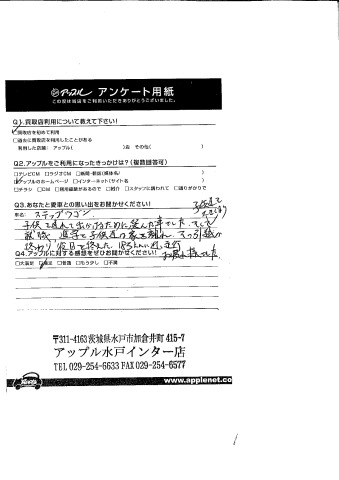 アップル アンケート用紙
この度は当店をご利用いただきありがとうございました。
Q1.買取店利用について教えて下さい!
買取店を初めて利用
□過去に買取店を利用したことがある
利用した店舗: アップル( )店 その他( )
Q2.アップルをご利用になったきっかけは?(複数回答可)
□テレビCM □ラジオCM □新聞・雑誌(媒体名/ )
アップルのホームページ □インターネット(サイト名 )
□チラシ □DM □商談展示があるので □紹介 □スタッフに誘われて □通りがかりで
Q3.あなたと愛車との思い出をお聞かせください!
車名: ステップワゴン
子供を連れて出かけるために選んだ車でした
就職、進学と子供達の家を離れ、引越しが
終わり 役目を終えた
お疲れ様でした
Q4.アップルに対する感想をぜひお聞かせください!
□大満足 満足 □普通 □もう少し □不満
〒311-4163茨城県水戸市加倉井町 415-7
アップル水戸インター店
TEL 029-254-6633 FAX 029-254-6577
www.applenet.co